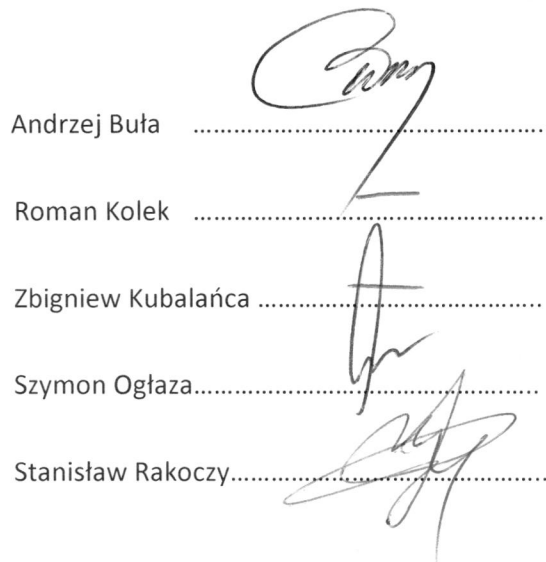 Andrzej Buła ........................................................
Roman Kolek ........................................................
Zbigniew Kubalańca .............................................
Szymon Ogłaza.......................................................
Stanisław Rakoczy..................................................